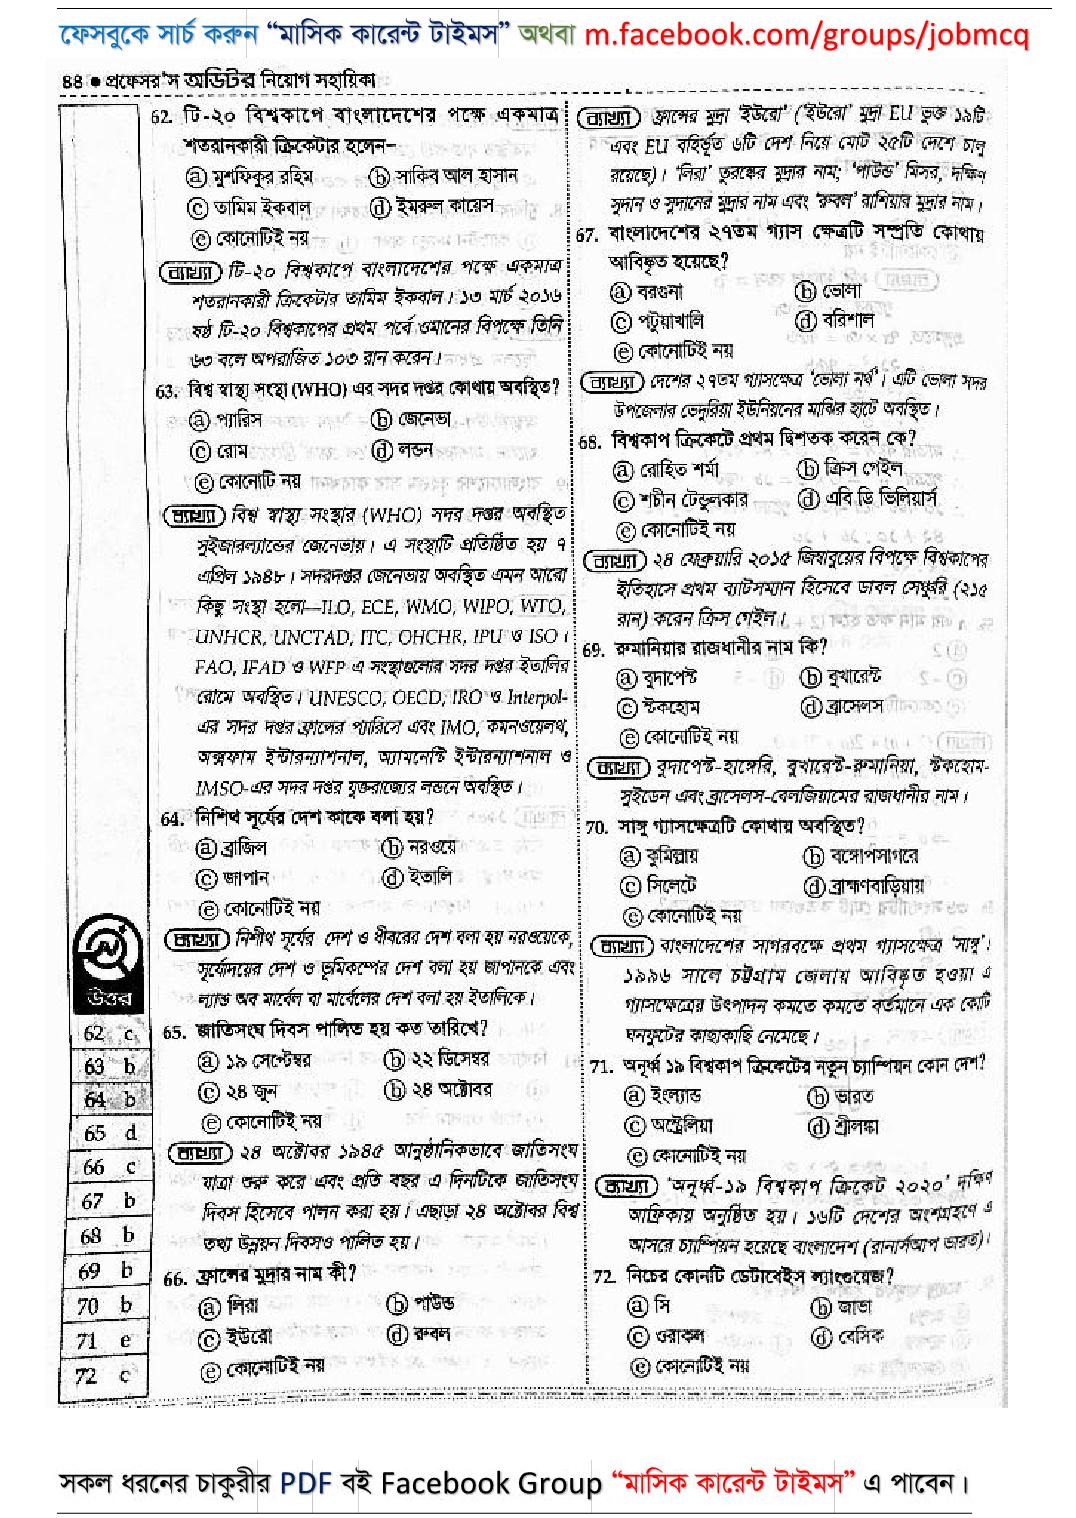 ফেসবুকে সার্চ করুন “মাসিক কারেন্ট টাইমস” অথবা m.facebook.com/groups/jobmcq
৪৪ ● প্রফেসর'স অডিটর নিয়োগ সহায়িকা
62. টি-২০ বিশ্বকাপে বাংলাদেশের পক্ষে একমাত্র
শতরানকারী ক্রিকেটার হলেন–
ⓐ মুশফিকুর রহিম ⓑ সাকিব আল হাসান
ⓒ তামিম ইকবাল ⓓ ইমরুল কায়েস
ⓔ কোনোটিই নয়
ব্যাখ্যা টি-২০ বিশ্বকাপে বাংলাদেশের পক্ষে একমাত্র
শতরানকারী ক্রিকেটার তামিম ইকবাল। ১৩ মার্চ ২০১৬
ষষ্ঠ টি-২০ বিশ্বকাপের প্রথম পর্বে ওমানের বিপক্ষে তিনি
৬৩ বলে অপরাজিত ১০৩ রান করেন।
63. বিশ্ব স্বাস্থ্য সংস্থা (WHO) এর সদর দপ্তর কোথায় অবস্থিত?
ⓐ প্যারিস ⓑ জেনেভা
ⓒ রোম ⓓ লন্ডন
ⓔ কোনোটি নয়
ব্যাখ্যা বিশ্ব স্বাস্থ্য সংস্থার (WHO) সদর দপ্তর অবস্থিত
সুইজারল্যান্ডের জেনেভায়। এ সংস্থাটি প্রতিষ্ঠিত হয় ৭
এপ্রিল ১৯৪৮। সদরদপ্তর জেনেভায় অবস্থিত এমন আরো
কিছু সংস্থা হলো—ILO, ECE, WMO, WIPO, WTO,
UNHCR, UNCTAD, ITC, OHCHR, IPU ও ISO।
FAO, IFAD ও WFP এ সংস্থাগুলোর সদর দপ্তর ইতালির
রোমে অবস্থিত। UNESCO, OECD, IRO ও Interpol-
এর সদর দপ্তর ফ্রান্সের প্যারিসে এবং IMO, কমনওয়েলথ,
অক্সফাম ইন্টারন্যাশনাল, অ্যামনেস্টি ইন্টারন্যাশনাল ও
IMSO-এর সদর দপ্তর যুক্তরাজ্যের লন্ডনে অবস্থিত।
64. নিশিথ সূর্যের দেশ কাকে বলা হয়?
ⓐ ব্রাজিল ⓑ নরওয়ে
ⓒ জাপান ⓓ ইতালি
ⓔ কোনোটিই নয়
ব্যাখ্যা নিশীথ সূর্যের দেশ ও ধীবরের দেশ বলা হয় নরওয়েকে,
সূর্যোদয়ের দেশ ও ভূমিকম্পের দেশ বলা হয় জাপানকে এবং
ল্যান্ড অব মার্বেল বা মার্বেলের দেশ বলা হয় ইতালিকে।
65. জাতিসংঘ দিবস পালিত হয় কত তারিখে?
ⓐ ১৯ সেপ্টেম্বর ⓑ ২২ ডিসেম্বর
ⓒ ২৪ জুন ⓑ ২৪ অক্টোবর
ⓔ কোনোটিই নয়
ব্যাখ্যা ২৪ অক্টোবর ১৯৪৫ আনুষ্ঠানিকভাবে জাতিসংঘ
যাত্রা শুরু করে এবং প্রতি বছর এ দিনটিকে জাতিসংঘ
দিবস হিসেবে পালন করা হয়। এছাড়া ২৪ অক্টোবর বিশ্ব
তথ্য উন্নয়ন দিবসও পালিত হয়।
66. ফ্রান্সের মুদ্রার নাম কী?
ⓐ লিরা ⓑ পাউন্ড
ⓒ ইউরো ⓓ রুবল
ⓔ কোনোটিই নয়
উত্তর
62 c
63 b
64 b
65 d
66 c
67 b
68 b
69 b
70 b
71 e
72 c
ব্যাখ্যা ফ্রান্সের মুদ্রা 'ইউরো' ('ইউরো' মুদ্রা EU ভুক্ত ১৯টি
এবং EU বহির্ভূত ৬টি দেশ নিয়ে মোট ২৫টি দেশে চালু
রয়েছে)। 'লিরা' তুরস্কের মুদ্রার নাম; 'পাউন্ড' মিসর, দক্ষিণ
সুদান ও সুদানের মুদ্রার নাম এবং 'রুবল' রাশিয়ার মুদ্রার নাম।
67. বাংলাদেশের ২৭তম গ্যাস ক্ষেত্রটি সম্প্রতি কোথায়
আবিষ্কৃত হয়েছে?
ⓐ বরগুনা ⓑ ভোলা
ⓒ পটুয়াখালি ⓓ বরিশাল
ⓔ কোনোটিই নয়
ব্যাখ্যা দেশের ২৭তম গ্যাসক্ষেত্র 'ভোলা নর্থ'। এটি ভোলা সদর
উপজেলার ভেদুরিয়া ইউনিয়নের মাঝির হাটে অবস্থিত।
68. বিশ্বকাপ ক্রিকেটে প্রথম দ্বিশতক করেন কে?
ⓐ রোহিত শর্মা ⓑ ক্রিস গেইল
ⓒ শচীন টেন্ডুলকার ⓓ এবি ডি ভিলিয়ার্স
ⓔ কোনোটিই নয়
ব্যাখ্যা ২৪ ফেব্রুয়ারি ২০১৫ জিম্বাবুয়ের বিপক্ষে বিশ্বকাপের
ইতিহাসে প্রথম ব্যাটসম্যান হিসেবে ডাবল সেঞ্চুরি (২১৫
রান) করেন ক্রিস গেইল।
69. রুমানিয়ার রাজধানীর নাম কি?
ⓐ বুদাপেস্ট ⓑ বুখারেস্ট
ⓒ স্টকহোম ⓓ ব্রাসেলস
ⓔ কোনোটিই নয়
ব্যাখ্যা বুদাপেস্ট-হাঙ্গেরি, বুখারেস্ট-রুমানিয়া, স্টকহোম-
সুইডেন এবং ব্রাসেলস-বেলজিয়ামের রাজধানীর নাম।
70. সাঙ্গু গ্যাসক্ষেত্রটি কোথায় অবস্থিত?
ⓐ কুমিল্লায় ⓑ বঙ্গোপসাগরে
ⓒ সিলেটে ⓓ ব্রাহ্মণবাড়িয়ায়
ⓔ কোনোটিই নয়
ব্যাখ্যা বাংলাদেশের সাগরবক্ষে প্রথম গ্যাসক্ষেত্র 'সাঙ্গু'।
১৯৯৬ সালে চট্টগ্রাম জেলায় আবিষ্কৃত হওয়া এ
গ্যাসক্ষেত্রের উৎপাদন কমতে কমতে বর্তমানে এক কোটি
ঘনফুটের কাছাকাছি নেমেছে।
71. অনূর্ধ্ব ১৯ বিশ্বকাপ ক্রিকেটের নতুন চ্যাম্পিয়ন কোন দেশ?
ⓐ ইংল্যান্ড ⓑ ভারত
ⓒ অস্ট্রেলিয়া ⓓ শ্রীলঙ্কা
ⓔ কোনোটিই নয়
ব্যাখ্যা 'অনূর্ধ্ব-১৯ বিশ্বকাপ ক্রিকেট ২০২০' দক্ষিণ
আফ্রিকায় অনুষ্ঠিত হয়। ১৬টি দেশের অংশগ্রহণে এ
আসরে চ্যাম্পিয়ন হয়েছে বাংলাদেশ (রানার্সআপ ভারত)।
72. নিচের কোনটি ডেটাবেইস ল্যাংগুয়েজ?
ⓐ সি ⓑ জাভা
ⓒ ওরাকল ⓓ বেসিক
ⓔ কোনোটিই নয়
সকল ধরনের চাকুরীর PDF বই Facebook Group “মাসিক কারেন্ট টাইমস” এ পাবেন।